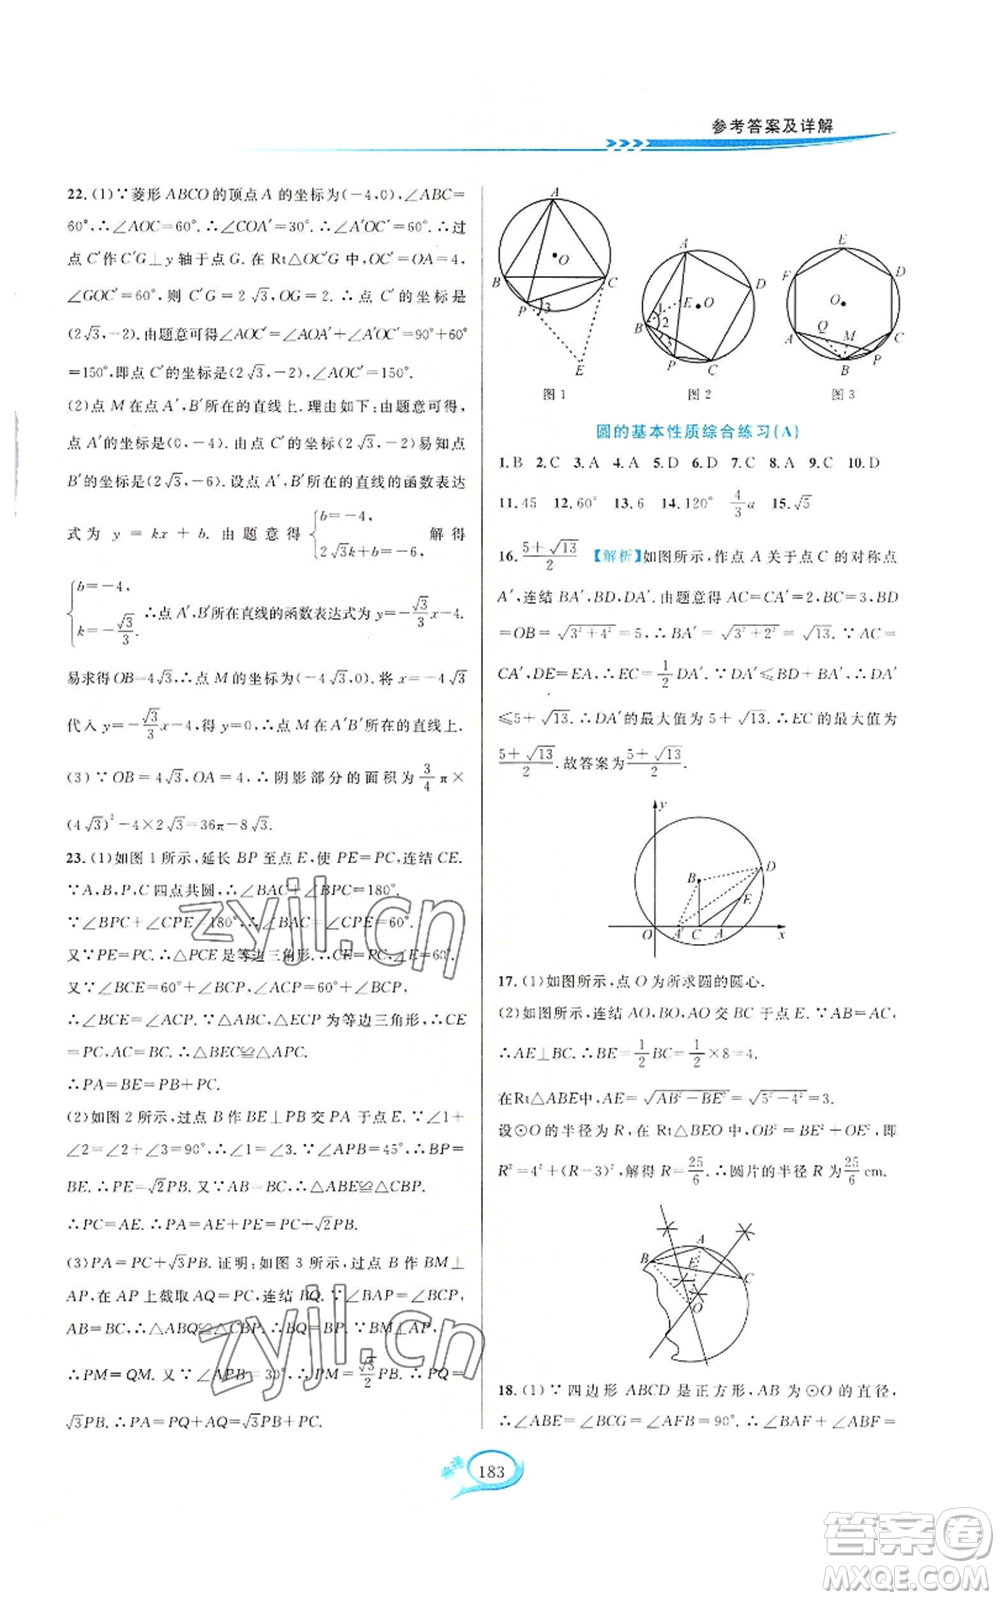 参考答案及详解
22. (1)∵菱形 ABCO 的顶点 A 的坐标为(-4,0),∠ABC=
60°,∴∠AOC=60°.∴∠COA′=30°.∴∠A′OC′=60°.∴过
点 C′作 C′G⊥y 轴于点 G. 在 Rt△OC′G 中,OC′=OA=4,
∠GOC′=60°,则 C′G=2√3,OG=2.∴点 C′的坐标是
(2√3,-2).由题意可得∠AOC′=∠AOA′+∠A′OC′=90°+60°
=150°,即点 C′的坐标是(2√3,-2),∠AOC′=150°.
(2)点 M 在点 A′,B′所在的直线上.理由如下:由题意可得点 A′
(0,-4).由点 C′的坐标是(2√3,-2)易知点
B′的坐标是(2√3,-6).设点 A′,B′所在的直线的函数表达
式为 y=kx+b.由题意得{b=-4, 2√3k+b=-6, 解得
{b=-4, k=-√3/3. ∴点 A′,B′所在直线的函数表达式为 y=-√3/3x-4.
易求得 OB=4√3,∴点 M 的坐标为(-4√3,0).将 x=-4√3
代入 y=-√3/3x-4,得 y=0.∴点 M 在 A′B′所在的直线上.
(3)∵OB=4√3,OA=4,∴阴影部分的面积为 3/4 π×
(4√3)²-4×2√3=36π-8√3.
23. (1)如图 1 所示,延长 BP 至点 E,使 PE=PC,连结 CE.
∵A,B,P,C 四点共圆,∴∠BAC+∠BPC=180°.
∵∠BPC+∠CPE=180°,∴∠BAC=∠CPE=60°.
又∵PE=PC,∴△PCE是等边三角形.∴∠ECP=∠E=60°.
又∵∠BCE=60°+∠BCP,∠ACP=60°+∠BCP,
∴∠BCE=∠ACP.∵△ABC,△ECP 为等边三角形,∴CE
=PC,AC=BC.∴△BEC≌△APC.
∴PA=BE=PB+PC.
(2)如图 2 所示,过点 B 作 BE⊥PB 交 PA 于点 E.∵∠1+
∠2=∠2+∠3=90°,∴∠1=∠3.∵∠APB=45°,∴BP=
BE.∴PE=√2PB.又∵AB=BC,∴△ABE≌△CBP.
∴PC=AE.∴PA=AE+PE=PC+√2PB.
(3)PA=PC+√3PB.证明:如图 3 所示,过点 B 作 BM⊥
AP,在 AP 上截取 AQ=PC,连结 BQ.∵∠BAP=∠BCP,
AB=BC.∴△ABQ≌△CBP.∴BQ=BP.
∴PM=QM.又∵∠APB=30°,∴PM=√3/2PB.∴PQ=
√3PB.∴PA=PQ+AQ=√3PB+PC.
A
B
C
O
P
3
E
图 1
A
D
E
O
1
2
B
3
P
C
图 2
E
F
D
O
Q
M
A
C
P
B
图 3
圆的基本性质综合练习(A)
1. B 2. C 3. A 4. A 5. D 6. D 7. C 8. A 9. C 10. D
11. 45 12. 60° 13. 6 14. 120° 4/3 a 15. √5
16. (5+√13)/2 【解析】如图所示,作点 A 关于点 C 的对称点
A′,连结 BA′,BD,DA′.由题意得 AC=CA′=2,BC=3,BD
=OB=√(3²+4²)=5,∴BA′=√(3²+2²)=√13.∵AC=
CA′,DE=EA,∴EC=1/2DA′.∵DA′≤BD+BA′,∴DA′
≤5+√13.∴DA′的最大值为 5+√13.∴EC 的最大值为
(5+√13)/2.故答案为(5+√13)/2.
y
B
D
E
O
A′
C
A
x
17. (1)如图所示,点 O 为所求圆的圆心.
(2)如图所示,连结 AO,BO,AO 交 BC 于点 E.∵AB=AC,
∴AE⊥BC.∴BE=1/2BC=1/2×8=4.
在Rt△ABE中,AE=√(AB²-BE²)=√(5²-4²)=3.
设⊙O 的半径为 R,在 Rt△BEO 中,OB²=BE²+OE²,即
R²=4²+(R-3)²,解得 R=25/6.∴圆片的半径 R 为25/6 cm.
A
B
E
C
O
18. (1)∵四边形 ABCD 是正方形,AF 为⊙O 的直径,
∴∠ABE=∠BCG=∠AFB=90°.∴∠BAF+∠ABF=
183
zyjl.cn
zyjl.cn
答案卷
MXQE.COM